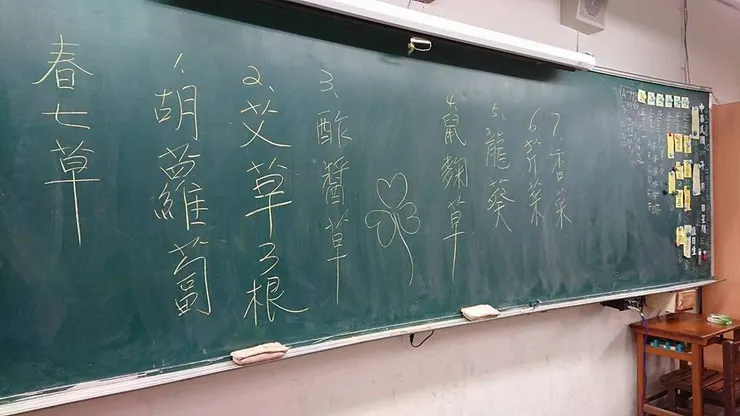 春七草
1、胡蘿蔔
2、艾草3根
3、酢醬草
4、鼠麴草
5、龍葵
6、芥菜
7、香菜
中華民國